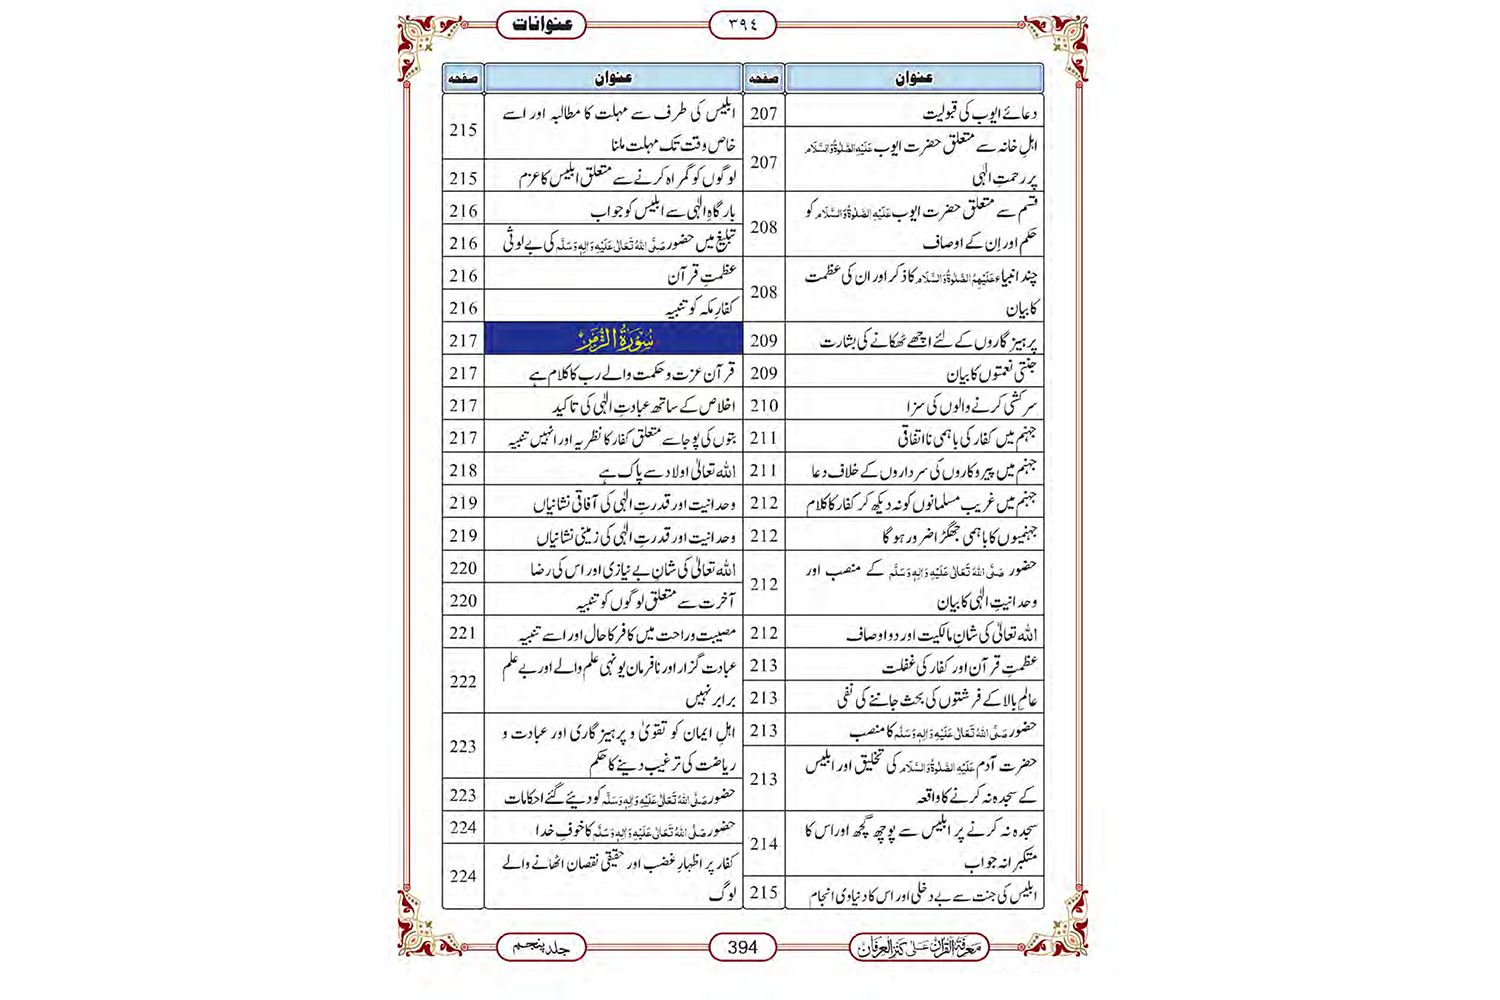 عنوانات
٣٩٤
عنوان
صفحہ
دعائے ایوب کی قبولیت
207
اہلِ خانہ سے متعلق حضرت ایوب عَلَیْہِ الصَّلٰوۃُ وَالسَّلَام
پر رحمتِ الٰہی
207
قسم سے متعلق حضرت ایوب عَلَیْہِ الصَّلٰوۃُ وَالسَّلَام کو
حکم اور اِن کے اوصاف
208
چند انبیاء عَلَیْہِمُ الصَّلٰوۃُ وَالسَّلَام کا ذکر اور ان کی عظمت
کا بیان
208
پرہیزگاروں کے لئے اچھے ٹھکانے کی بشارت
209
جنتی نعمتوں کا بیان
209
سرکشی کرنے والوں کی سزا
210
جہنم میں کفار کی باہمی نااتفاقی
211
جہنم میں پیروکاروں کی سرداروں کے خلاف دعا
211
جہنم میں غریب مسلمانوں کو نہ دیکھ کر کفار کا کلام
212
جہنمیوں کا باہمی جھگڑا ضرور ہو گا
212
حضور صَلَّی اللہُ تَعَالٰی عَلَیْہِ وَاٰلِہٖ وَسَلَّم کے منصب اور
وحدانیتِ الٰہی کا بیان
212
اللہ تعالیٰ کی شانِ مالکیت اور دو اوصاف
212
عظمتِ قرآن اور کفار کی غفلت
213
عالمِ بالا کے فرشتوں کی بحث جاننے کی نفی
213
حضور صَلَّی اللہُ تَعَالٰی عَلَیْہِ وَاٰلِہٖ وَسَلَّم کا منصب
213
حضرت آدم عَلَیْہِ الصَّلٰوۃُ وَالسَّلَام کی تخلیق اور ابلیس
کے سجدہ نہ کرنے کا واقعہ
213
سجدہ نہ کرنے پر ابلیس سے پوچھ گچھ اور اس کا
متکبرانہ جواب
214
ابلیس کی جنت سے بے دخلی اور اس کا دنیاوی انجام
215
عنوان
صفحہ
ابلیس کی طرف سے مہلت کا مطالبہ اور اسے
خاص وقت تک مہلت ملنا
215
لوگوں کو گمراہ کرنے سے متعلق ابلیس کا عزم
215
بارگاہِ الٰہی سے ابلیس کو جواب
216
تبلیغ میں حضور صَلَّی اللہُ تَعَالٰی عَلَیْہِ وَاٰلِہٖ وَسَلَّم کی بے لوثی
216
عظمتِ قرآن
216
کفارِ مکہ کو تنبیہ
216
سُوْرَۃُ الزُّمَر
217
قرآن عزت و حکمت والے رب کا کلام ہے
217
اخلاص کے ساتھ عبادتِ الٰہی کی تاکید
217
بتوں کی پوجا سے متعلق کفار کا نظریہ اور انہیں تنبیہ
217
اللہ تعالیٰ اولاد سے پاک ہے
218
وحدانیت اور قدرتِ الٰہی کی آفاقی نشانیاں
219
وحدانیت اور قدرتِ الٰہی کی زمینی نشانیاں
219
اللہ تعالیٰ کی شانِ بے نیازی اور اس کی رضا
220
آخرت سے متعلق لوگوں کو تنبیہ
220
مصیبت و راحت میں کافر کا حال اور اسے تنبیہ
221
عبادت گزار اور نافرمان یونہی علم والے اور بے علم
برابر نہیں
222
اہلِ ایمان کو تقویٰ و پرہیزگاری اور عبادت و
ریاضت کی ترغیب دینے کا حکم
223
حضور صَلَّی اللہُ تَعَالٰی عَلَیْہِ وَاٰلِہٖ وَسَلَّم کو دیئے گئے احکامات
223
حضور صَلَّی اللہُ تَعَالٰی عَلَیْہِ وَاٰلِہٖ وَسَلَّم کا خوفِ خدا
224
کفار پر اظہارِ غضب اور حقیقی نقصان اٹھانے والے
لوگ
224
معرفۃ القرآن علٰی کنز العرفان
394
جلد پنجم